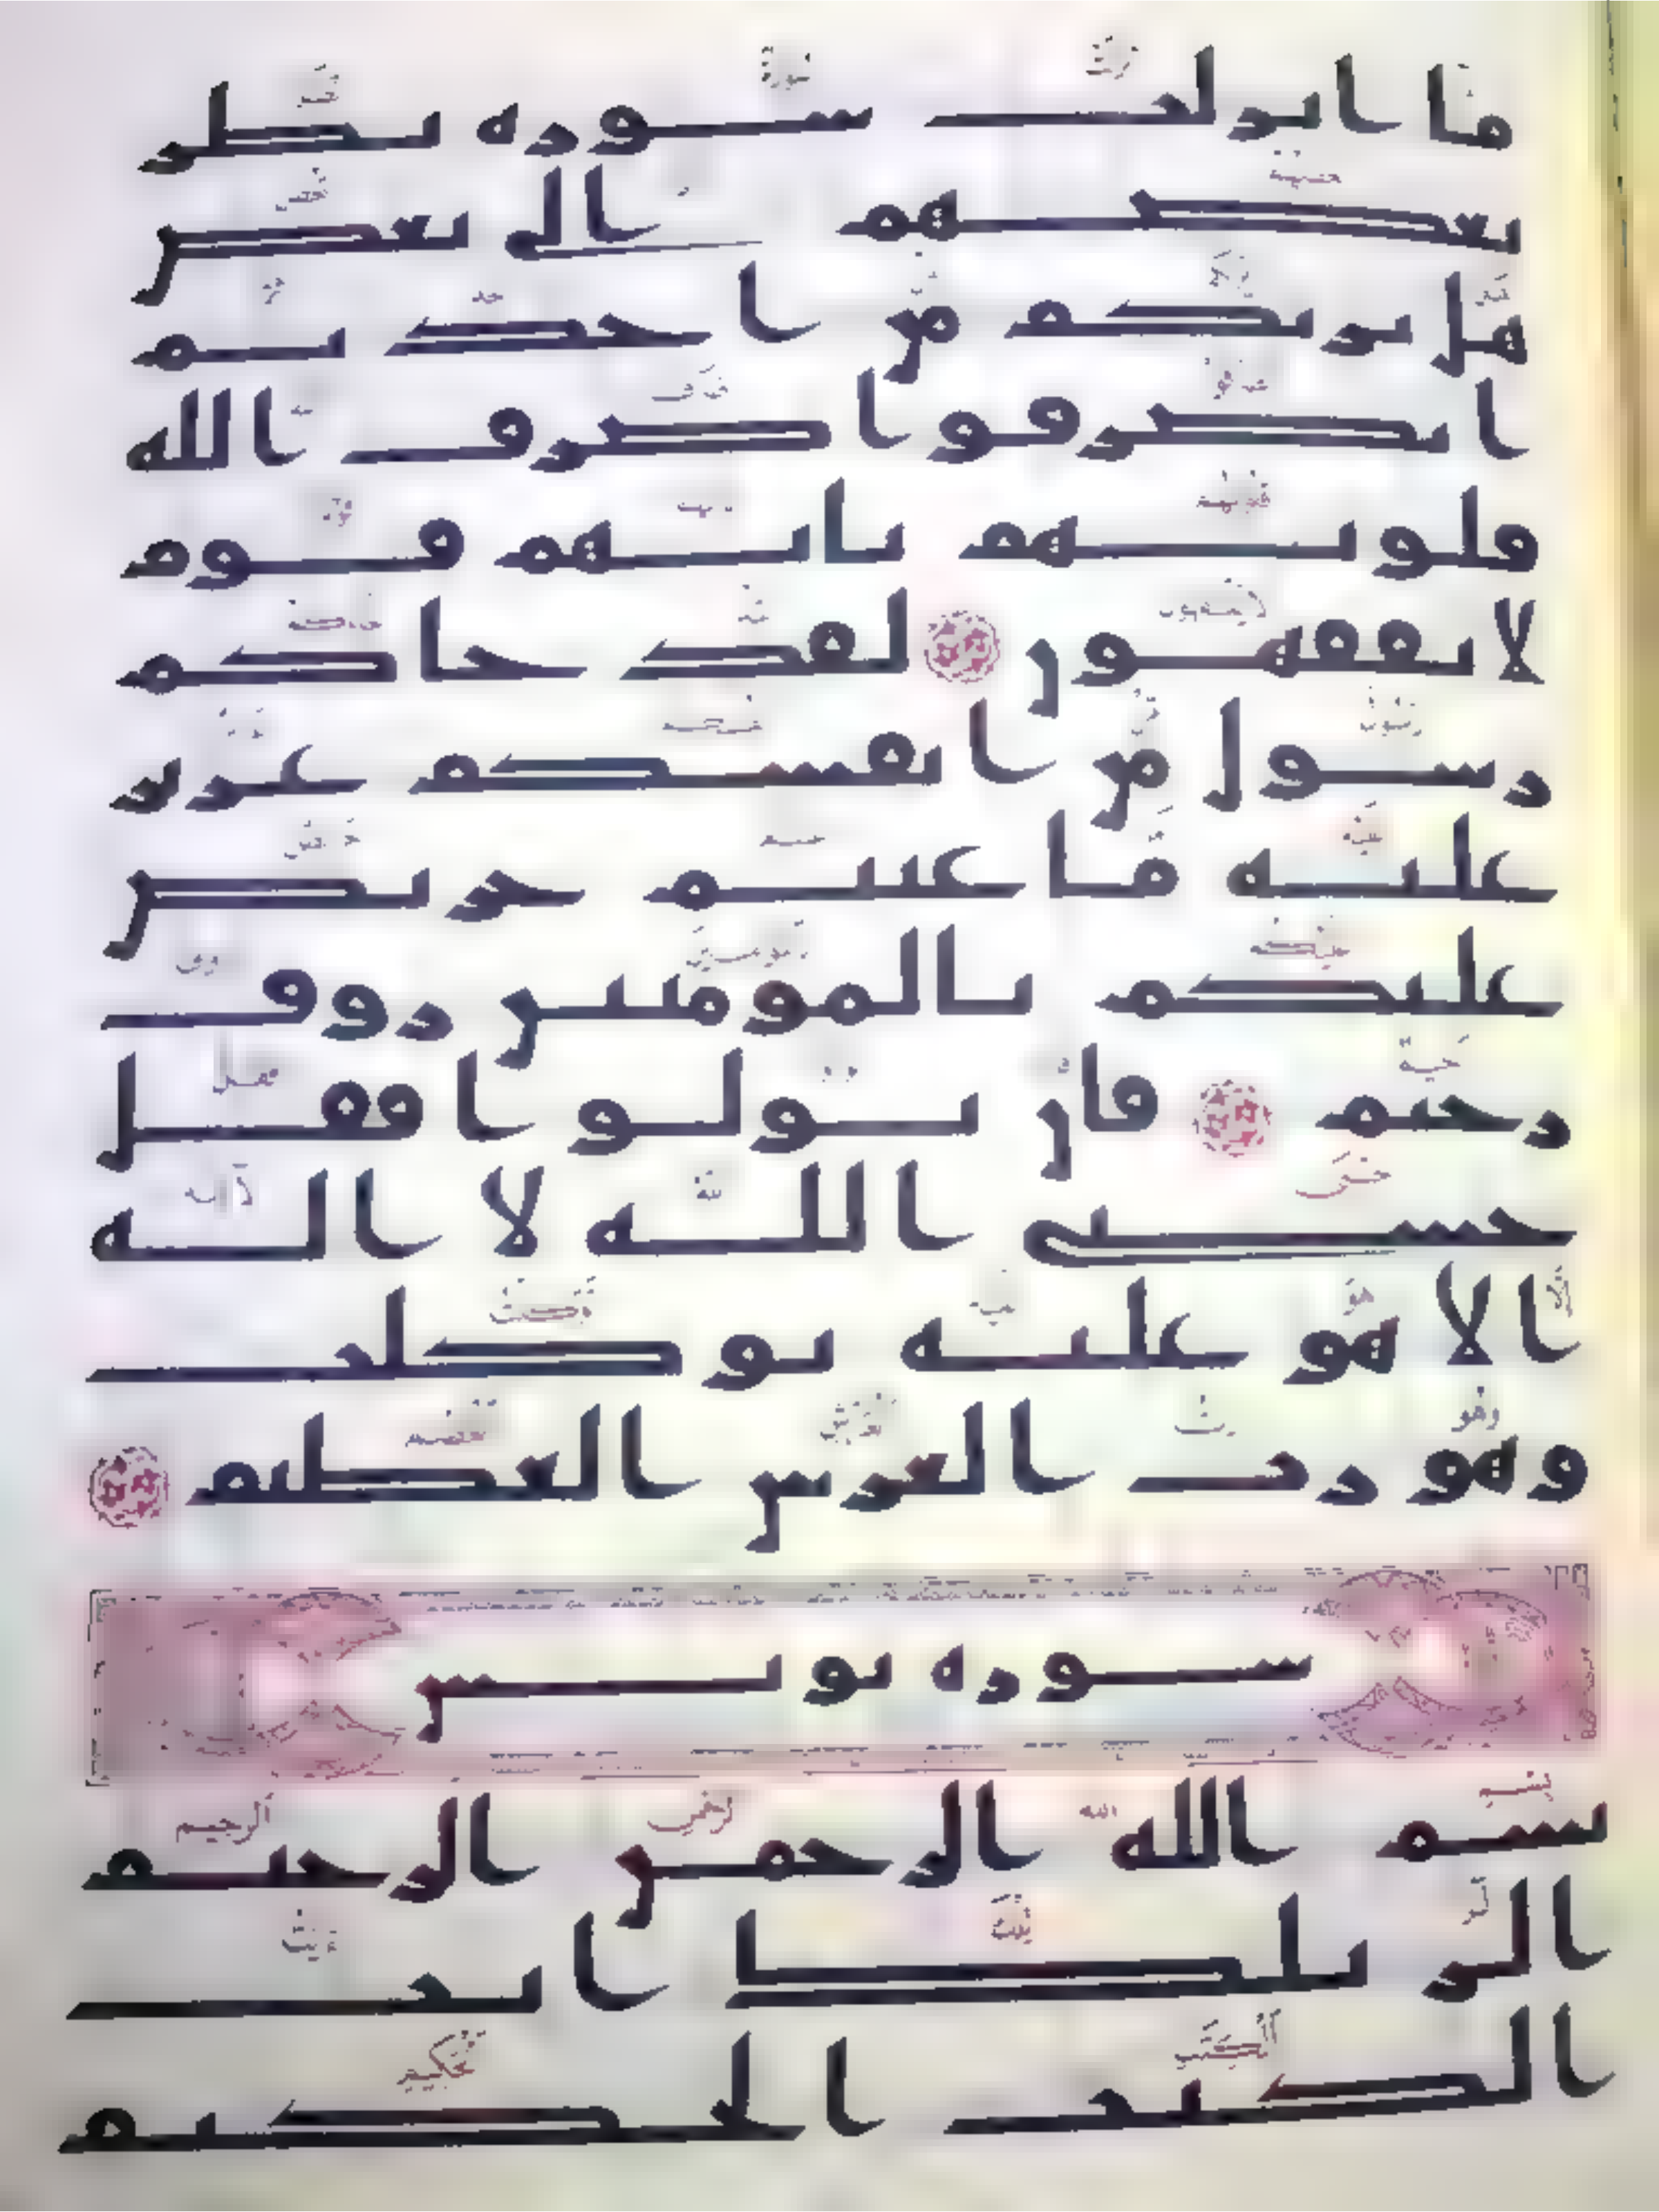 ما انزلت سورة نظر
بعضهم الى بعض
هل يريكم من احد ثم
انصرفوا صرف الله
قلوبهم بانهم قوم
لا يفقهون لقد جاكم
رسول من انفسكم عزيز
عليه ما عنتم حريص
عليكم بالمومنين روف
رحيم فان تولوا فقل
حسبي الله لا اله
الا هو عليه توكلت
وهو رب العرش العظيم
سورة يونس
بسم الله الرحمن الرحيم
الر تلك ايت
الكتب الحكيم